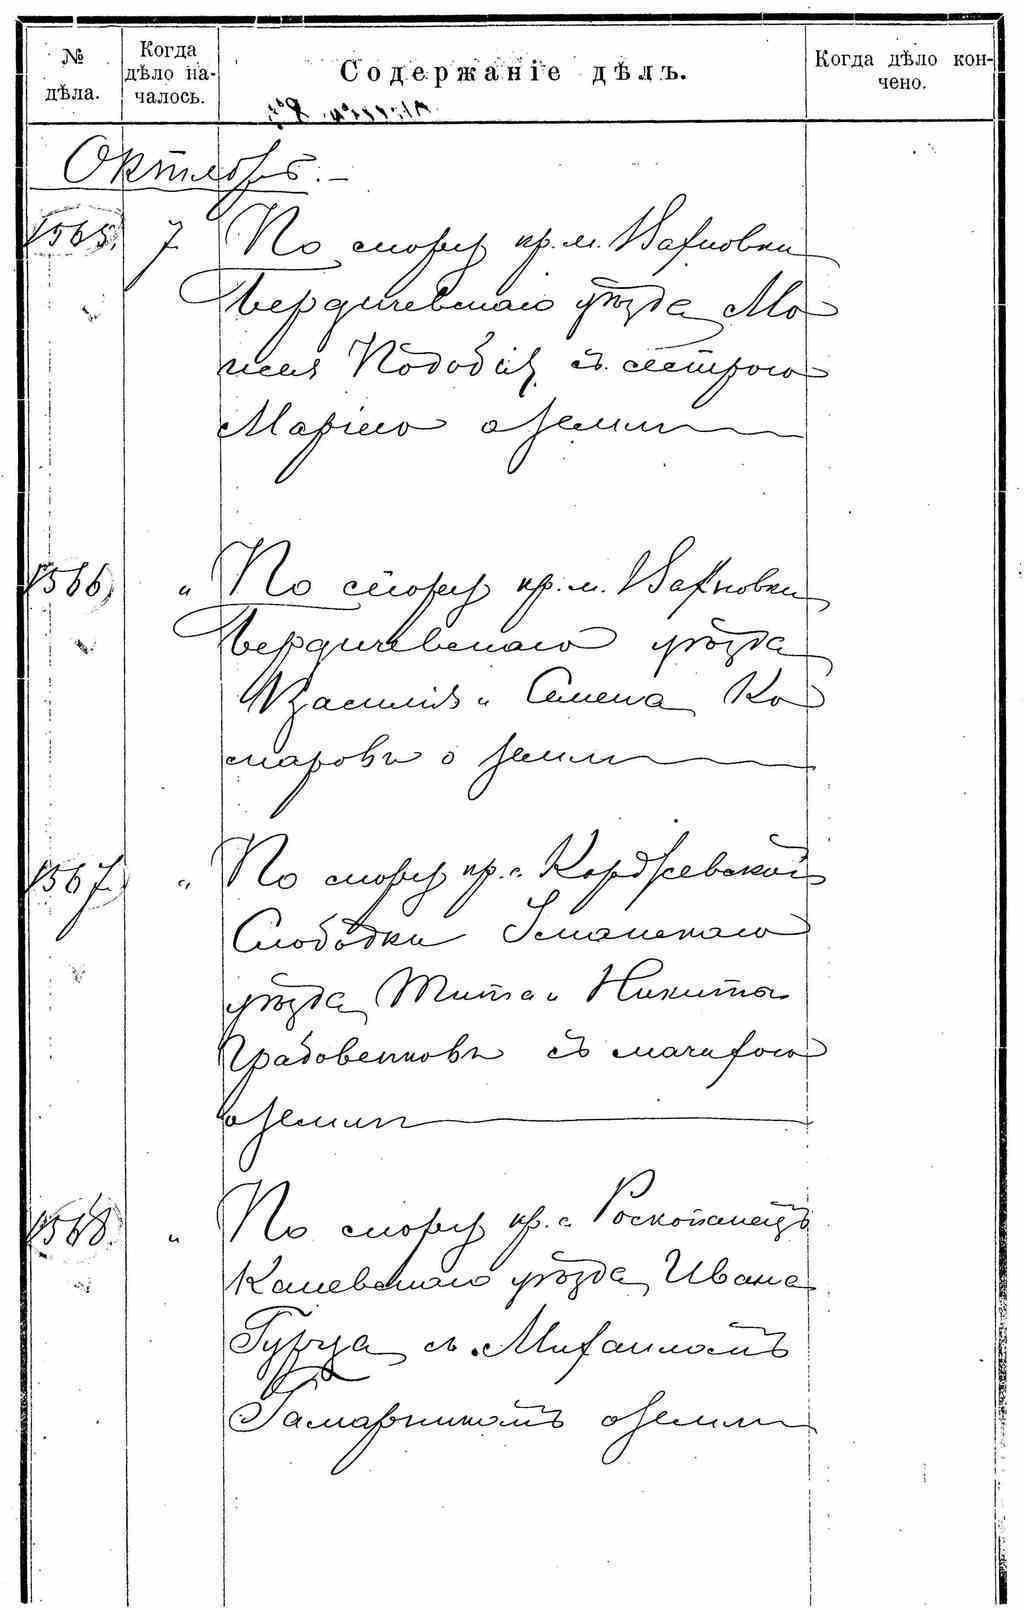 № дѣла.
Когда дѣло на-
чалось.
Содержаніе дѣлъ.
Когда дѣло кон-
чено.
Октябрь.
1565. 7 По спору кр. м. Вахновки
Бердичевскаго уѣзда Мо
исея Кодобія съ сестрою
Маріею о землѣ
1566 „ По спору кр. м. Вахновки
Бердичевскаго уѣзда
Василія и Семена Ко
маровъ о землѣ
1567. „ По спору кр. с. Коржевской
Слободки Уманскаго
уѣзда Тита и Никиты
Грабовенковъ съ мачихою
о землѣ
1568. „ По спору кр. с. Роскопанецъ
Каневскаго уѣзда Ивана
съ Михаиломъ
Гамарникомъ о землѣ